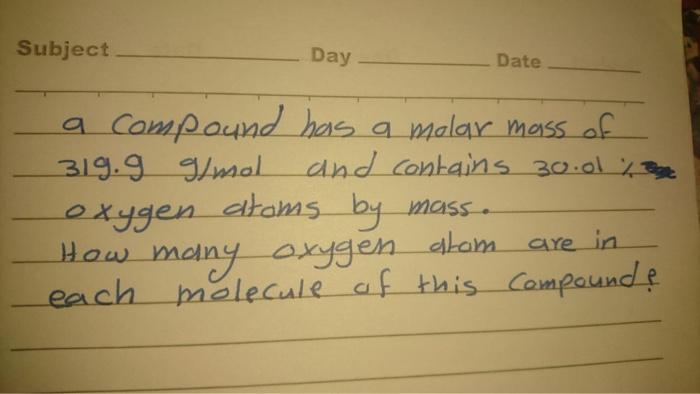 Subject Day Date
a compound has a molar mass of
319.9 g/mol and contains 30.01 %
oxygen atoms by mass.
How many oxygen atom are in
each molecule of this compound?